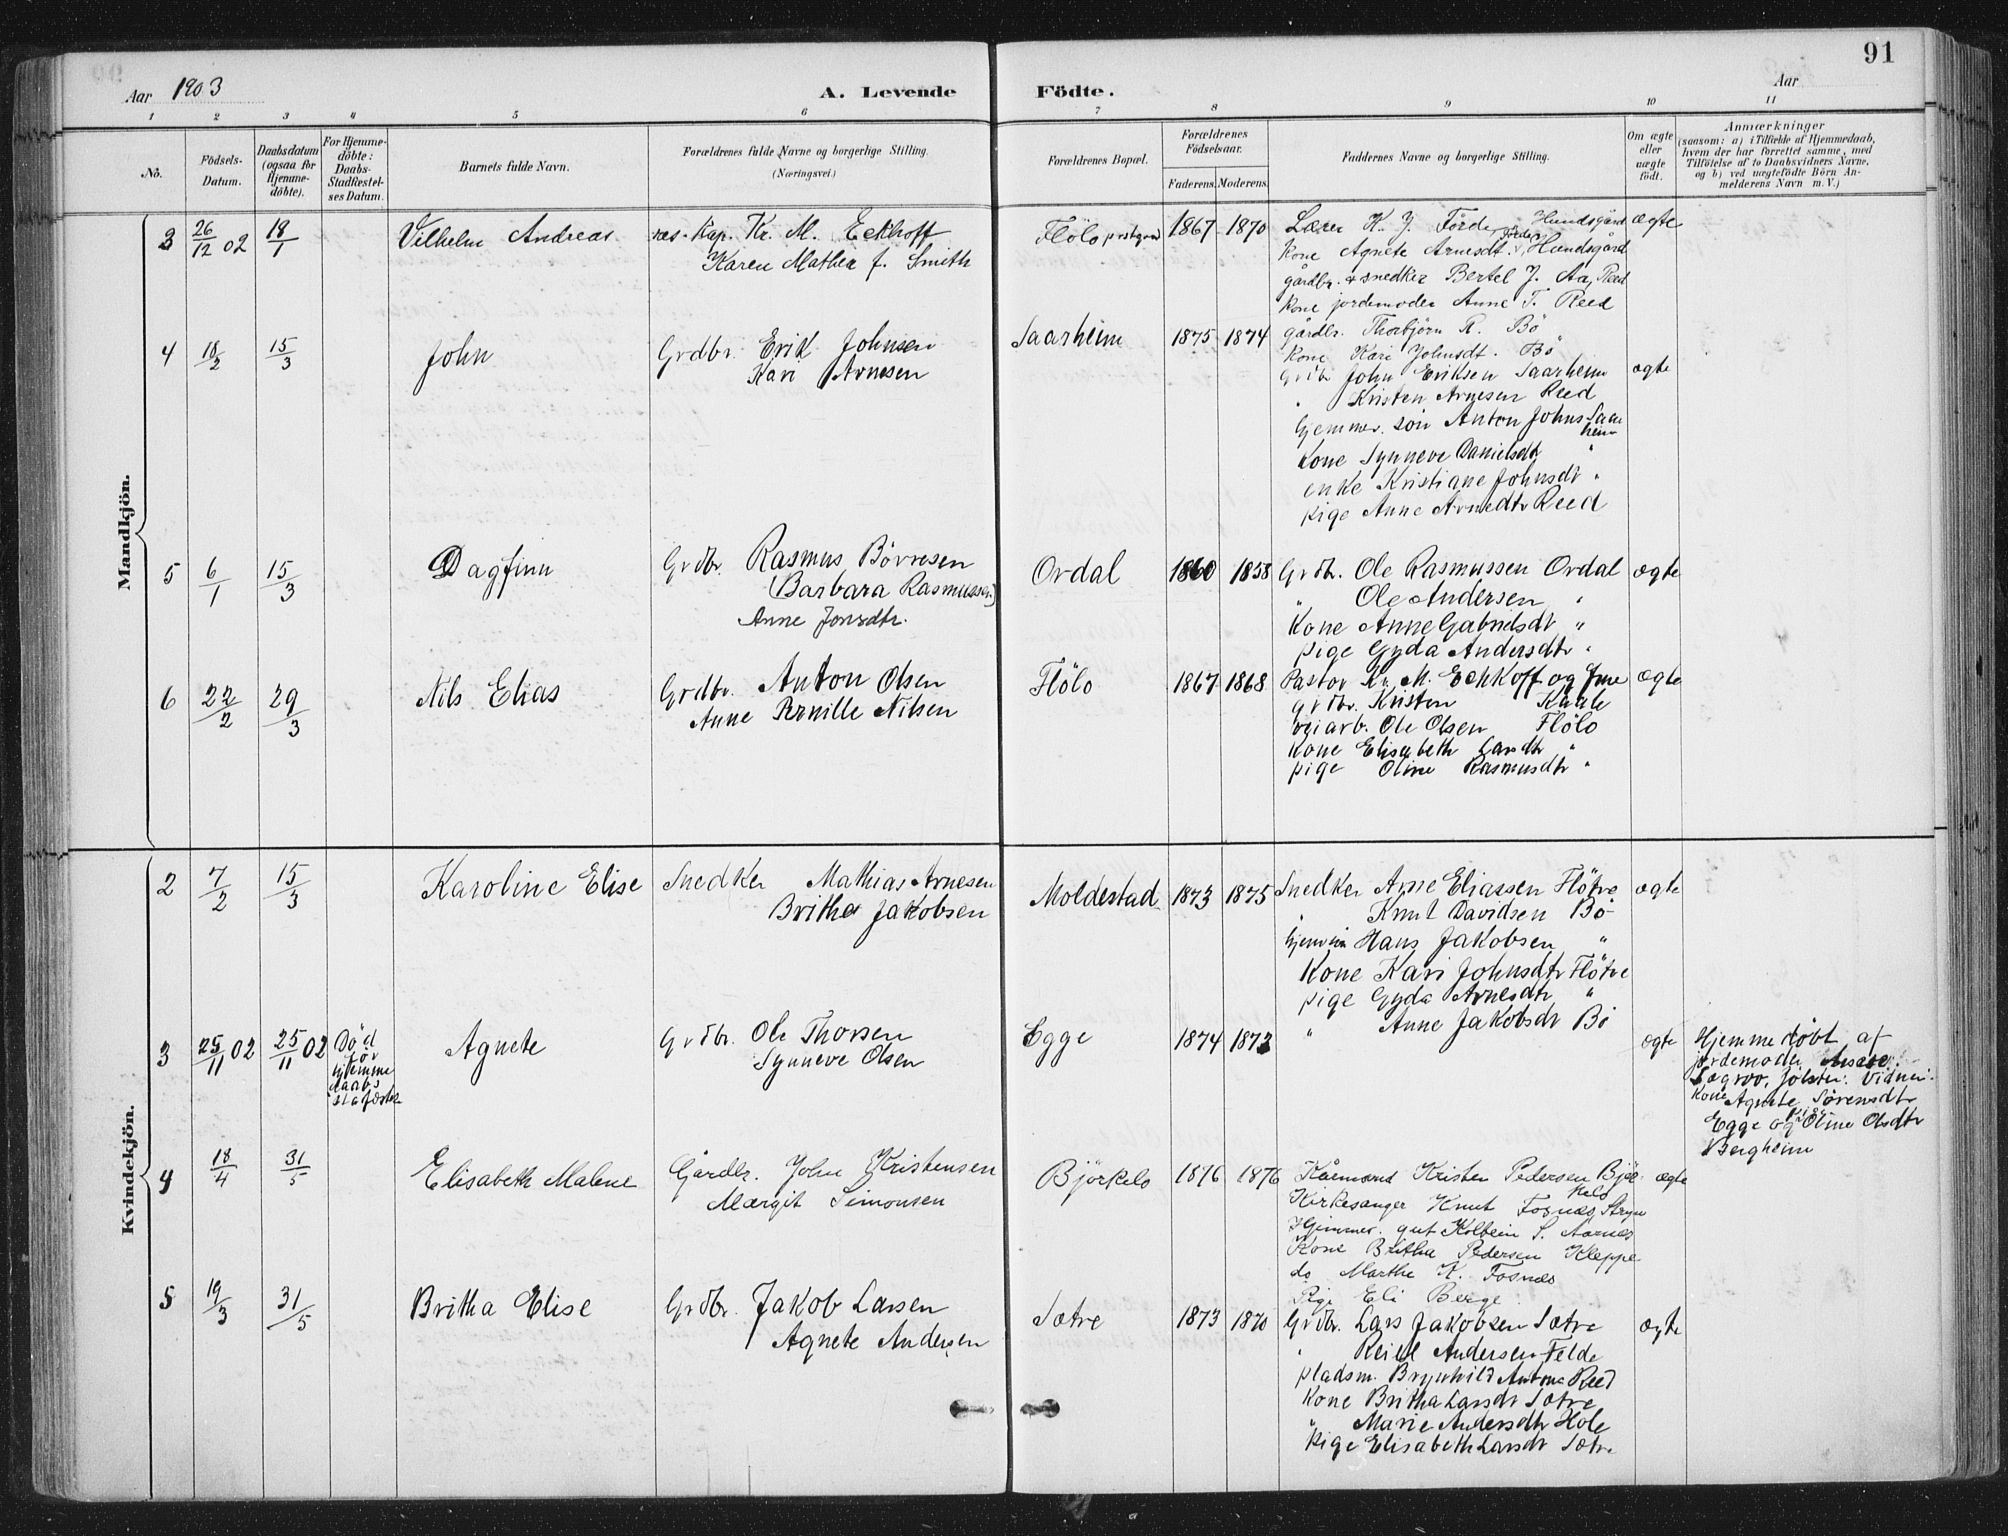 91
Aar 1903
A. Levende Födte.
Aar
1 2 3 4 5 6 7 8 9 10 11
No.
Födsels-Datum.
Daabsdatum (ogsaa for Hjemme-döbte).
For Hjemme-döbte: Daabs-Stadfæstel-ses Datum.
Barnets fulde Navn.
Forældrenes fulde Navne og borgerlige Stilling. (Næringsvei.)
Forældrenes Bopæl.
Forældrenes Födselsaar.
Faderens. Moderens.
Faddernes Navne og borgerlige Stilling.
Om ægte eller uægte födt.
Anmærkninger
(saasom: a) i Tilfælde af Hjemmedaab, hvem der har forrettet samme, med Tilföielse af to Daabsvidners Navne, og b) ved uægtefödte Börn An-melderens Navn m. V.)
Mandkjön.
3 26/12 02 18/1 Vilhelm Andreas res. Kap. Kr. M. Eckhoff
Karen Mathea f. Smith
Flölo prestegaard 1867 1870 ægte
Lærer K. J. Förde Hundsgård
Kone Agnete Arnesdt. Förde, Hundsgård
gårdbr. & snedker Bertel J. Aa, Reed
kone jordemoder Anne T. Reed
gårdbr. Thorbjörn R. Bö
kone Kari Johnsdt. Bö
4 18/2 15/3 John Grdbr. Erik Johnsen
Kari Arnesen
Saarheim 1875 1874 ægte
Grdbr John Eriksen Saarheim
" Kristen Arnesen Reed
hjemmev. sön Anton Johns. Saarheim
Kone Synneve Danielsdt "
enke Kristiane Johnsdt "
pige Anne Arnedtr Reed
5 6/1 15/3 Dagfinn Grdbr. Rasmus Börresen
(Barbara Rasmussen)
Anne Jonsdtr.
Ordal 1860 1858 ægte
Grdbr. Ole Rasmussen Ordal
" Ole Andersen "
Kone Anne Gabrielsdt "
pige Gyda Andersdtr "
6 22/2 29/3 Nils Elias Grdbr. Anton Olsen
Anne Pernille Nilsen
Flölo 1867 1868 ægte
Pastor Kr. M. Eckhoff og frue
grdbr. Kristen
veiarb. Ole Olsen Flölo
kone Elisabeth Larsdtr "
pige Oline Rasmusdtr "
Kvindekjön.
2 7/2 15/3 Karoline Elise Snedker Mathias Arnesen
Britha Jakobsen
Moldestad 1873 1875 ægte
Snedker Arne Eliassen Flötre
" Knut Davidsen Bö
Hans Jakobsen "
Kone Kari Johnsdtr Flötre
pige Gyda Arnesdtr "
" Anne Jakobsdt Bö
3 25/11 02 25/11 02 Död för hjemmedaabs stadfæstelse
Agnete Grdbr. Ole Thorsen
Synneve Olsen
Egge 1874 1873 ægte
Hjemmedöbt af
jordemoder
Sægrov, Jölster. Vidner:
Kone Agnete Sörensdtr
Egge og pige Oline Olsdtr
Bergheim
4 18/4 31/5 Elisabeth Malene Gårdbr. John Kristensen
Margit Simonsen
Björkelo 1876 1876 ægte
Kårmand Kristen Pedersen Björkelo
Kirkesanger Knut Fosnæs, Stryn
Hjemmev. gut Kolbein S. Aarnes
Kone Britha Pedersen Kleppe
do Marthe K. Fosnæs
Pige Eli Berge
5 19/3 31/5 Britha Elise Grdbr. Jakob Larsen
Agnete Andersen
Sætre 1873 1870 ægte
Grdbr. Lars Jakobsen Sætre
" Andersen Felde
pladsm. Brynhild Antons Reed
Kone Britha Larsdt Sætre
" Marie Andersdtr Hole
Pige Elisabeth Larsdt Sætre